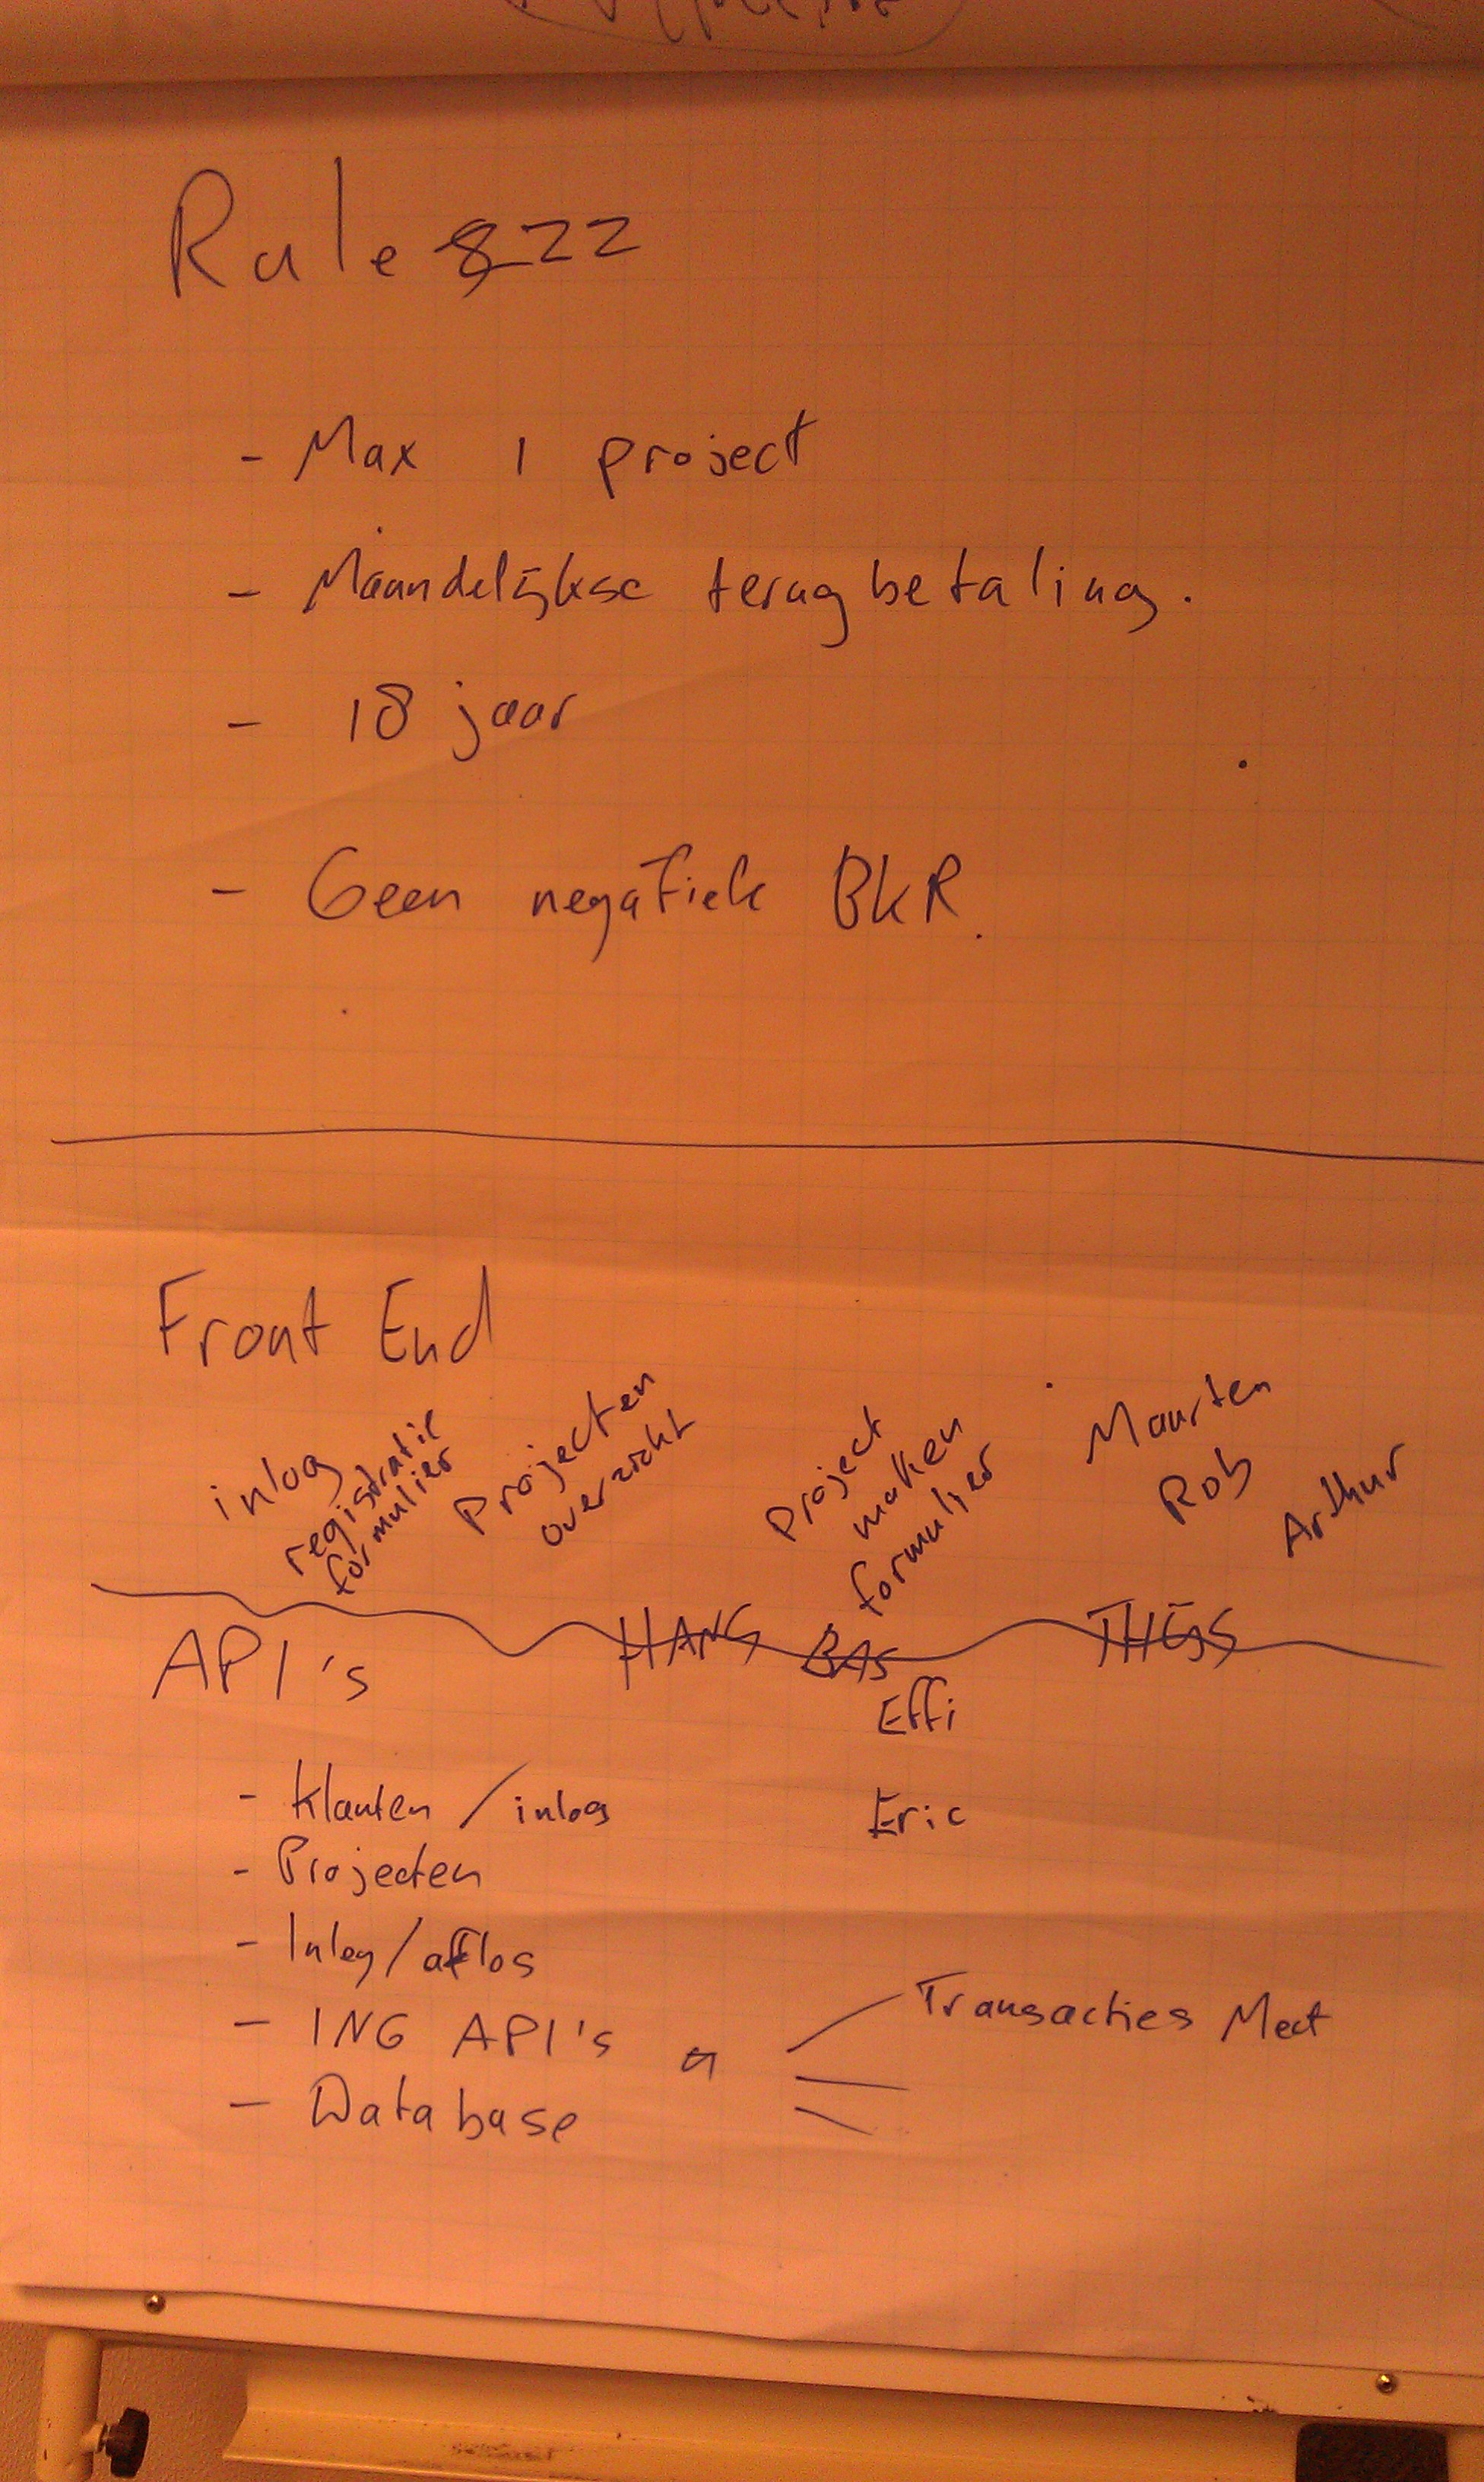 Rulezzz
- Max 1 project
- Maandelijkse terugbetaling.
- 18 jaar
- Geen negatiek BKR.
Front End
inlog
registratie
formulier
Projecten
overzicht
Project
maken
formulier
Maarten
Rob
Arthur
API's
HANS
BAS
THIJS
Effi
Eric
- Klanten / inlog
- Projecten
- Inleg/aflos
- ING API's
Transacties Mect
- Database